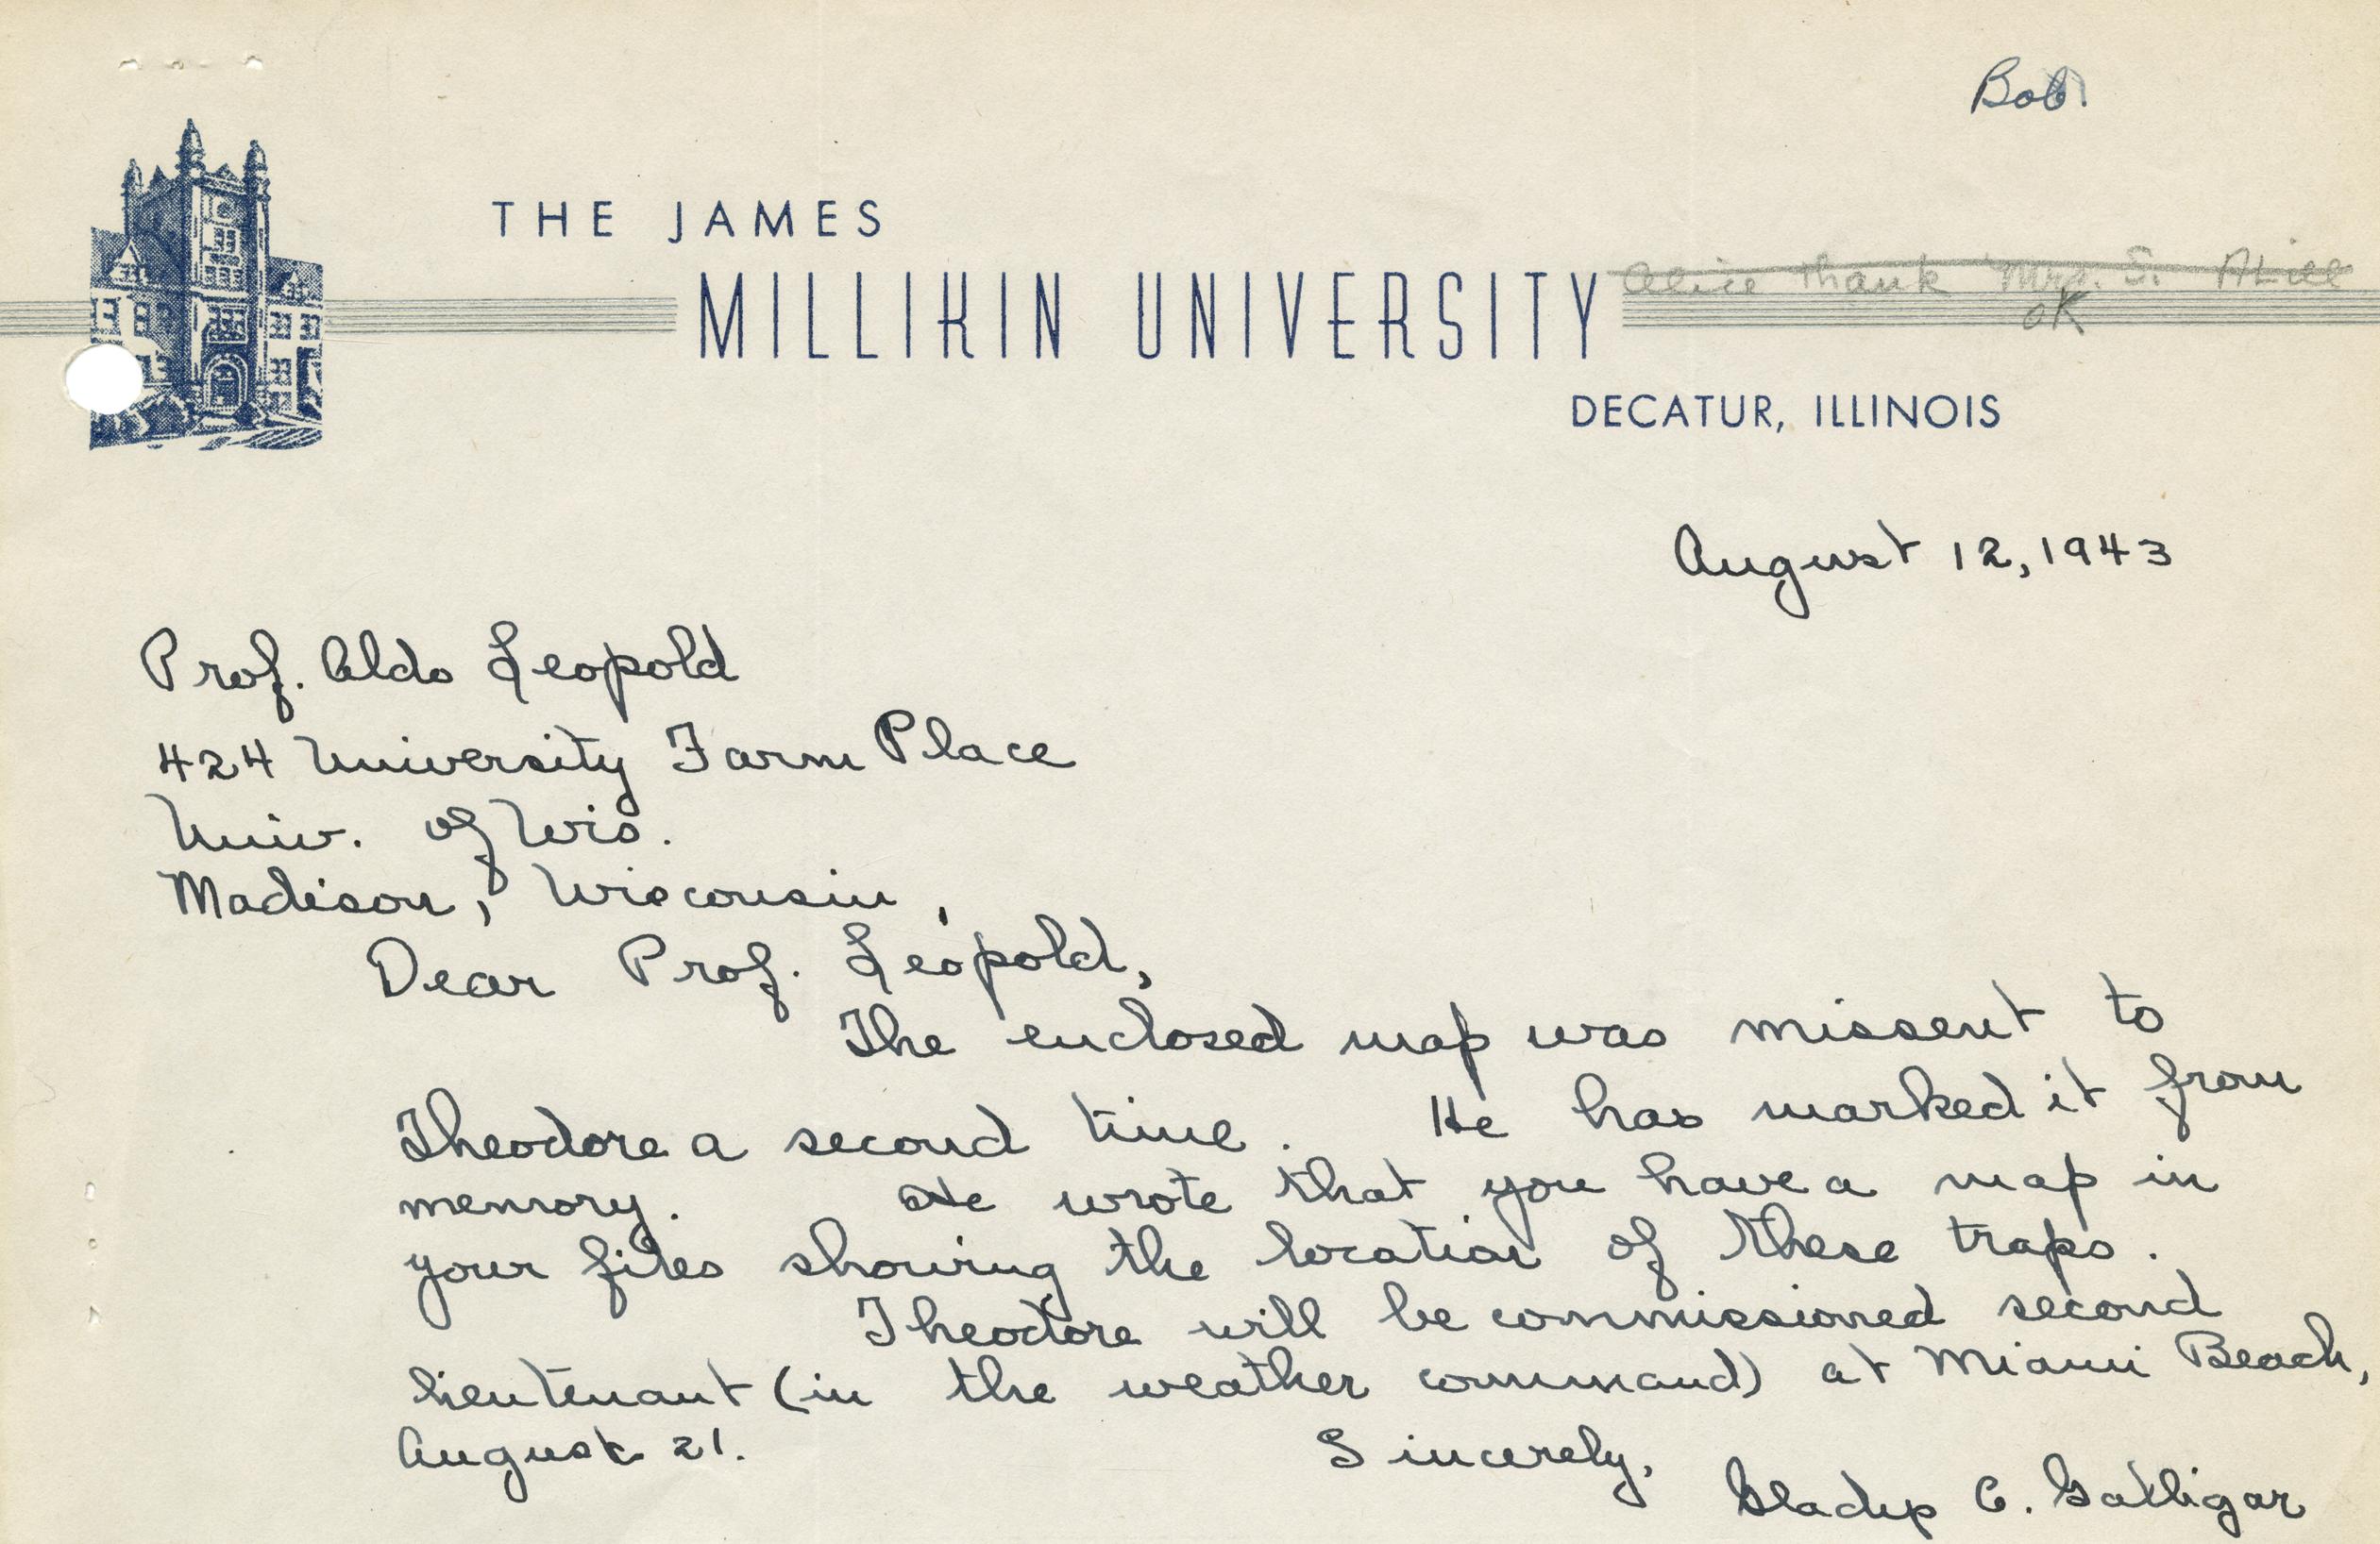 Bob.
THE JAMES
MILLIKIN UNIVERSITY
Alice thank Mrs. S.
OK
DECATUR, ILLINOIS
August 12, 1943
Prof. Aldo Leopold
424 University Farm Place
Univ. of Wis.
Madison, Wisconsin,
Dear Prof. Leopold,
The enclosed map was missent to
Theodore a second time. He has marked it from
memory. He wrote that you have a map in
your files showing the location of these traps.
Theodore will be commissioned second
lieutenant (in the weather command) at Miami Beach,
August 21.
Sincerely,
Gladys C. Galligar